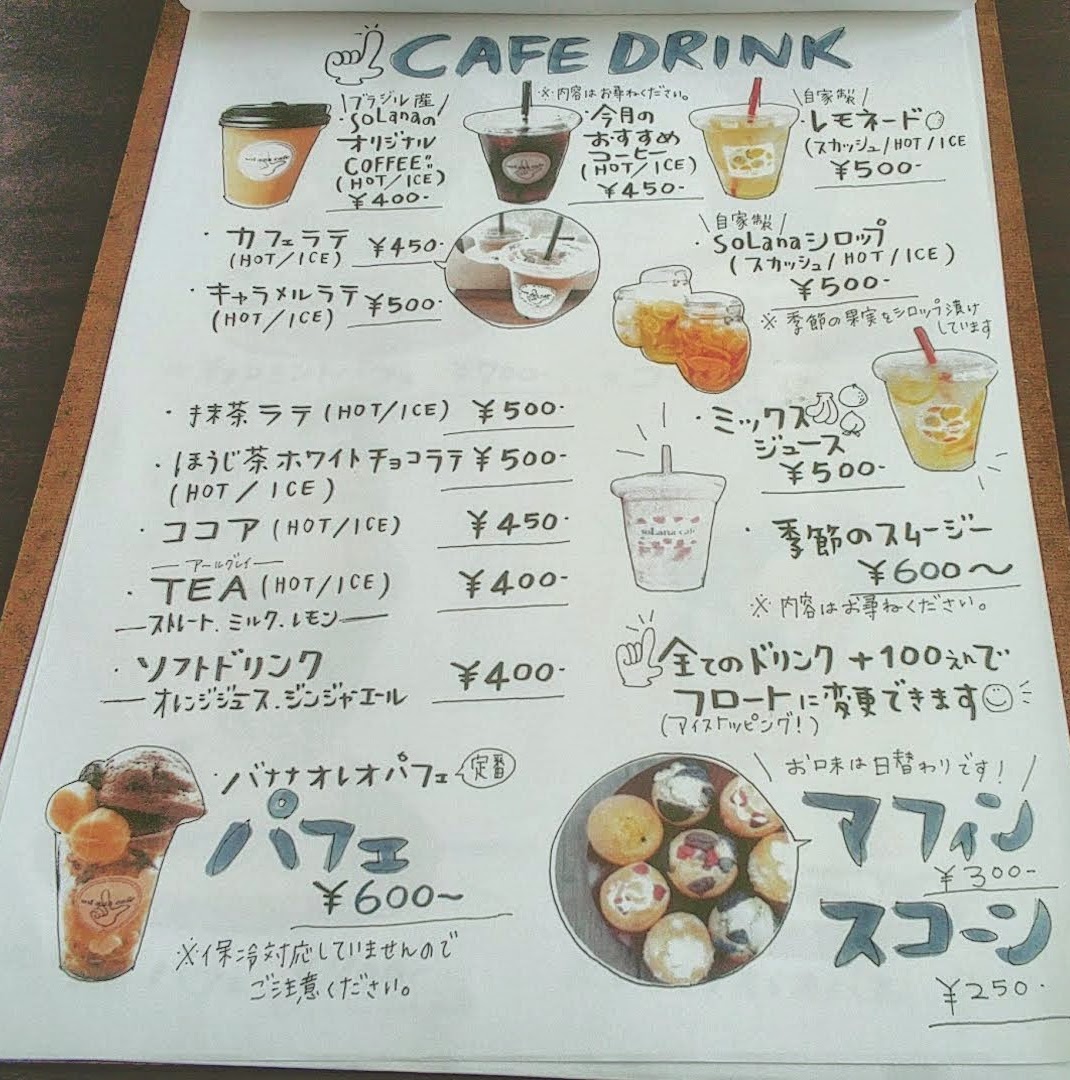 CAFE DRINK
ブラジル産
SoLanaの
オリジナル
COFFEE
(HOT/ICE)
¥400-
※内容はお尋ねください。
・今月の
おすすめ
コーヒー
(HOT/ICE)
¥450-
自家製
・レモネード
(スカッシュ/HOT/ICE
¥500-
・カフェラテ ¥450-
(HOT/ICE)
・キャラメルラテ ¥500-
(HOT/ICE)
自家製
・SoLanaシロップ
(スカッシュ/HOT/ICE)
¥500-
※季節の果実をシロップ漬け
しています
・抹茶ラテ(HOT/ICE) ¥500-
・ほうじ茶ホワイトチョコラテ ¥500-
(HOT/ICE)
・ココア(HOT/ICE) ¥450-
アールグレイ
・TEA(HOT/ICE) ¥400-
ストレート.ミルク.レモン
・ソフトドリンク ¥400-
オレンジジュース.ジンジャエール
・ミックス
ジュース
¥500-
soLana cafe
・季節のスムージー
¥600〜
※内容はお尋ねください。
全てのドリンク+100えんで
フロートに変更できます
(アイストッピング!)
・バナナオレオパフェ 定番
パフェ
¥600〜
※保冷対応していませんので
ご注意ください。
お口味は日替わりです!
マフィン
¥300-
スコーン
¥250-